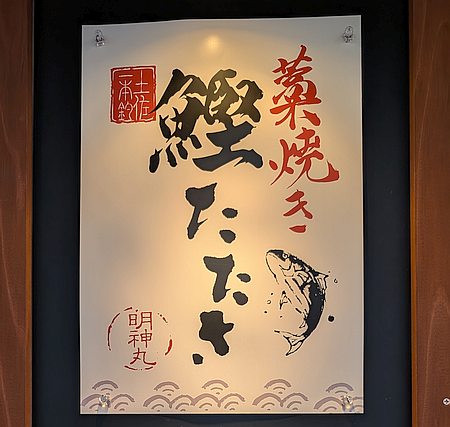 藁焼き
鰹たたき
土佐
一本釣
明神丸